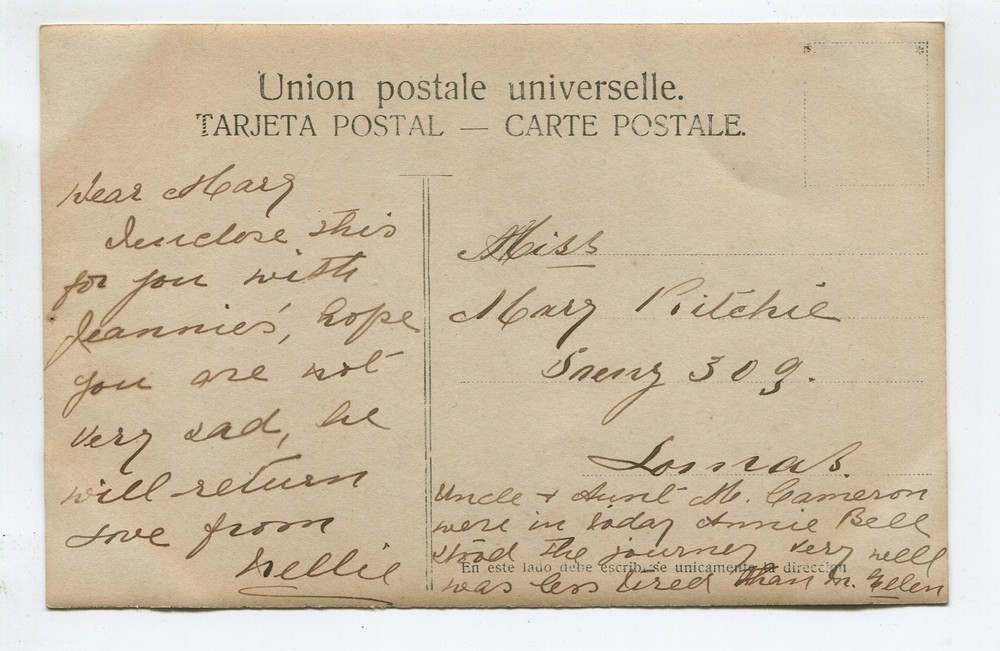 Union postale universelle.
TARJETA POSTAL — CARTE POSTALE.
Dear Mary
Ienclose this
for you with
Jeannies', hope
you are not
very sad, he
will return
Love from
Nellie
Miss
Mary Ritchie
309.
Lomas.
Uncle + Aunt M. Cameron
were in today Annie Bell
stood the journey very well
En este lado debe escribirse unicamente la dirección
was less tired than M. Ellen